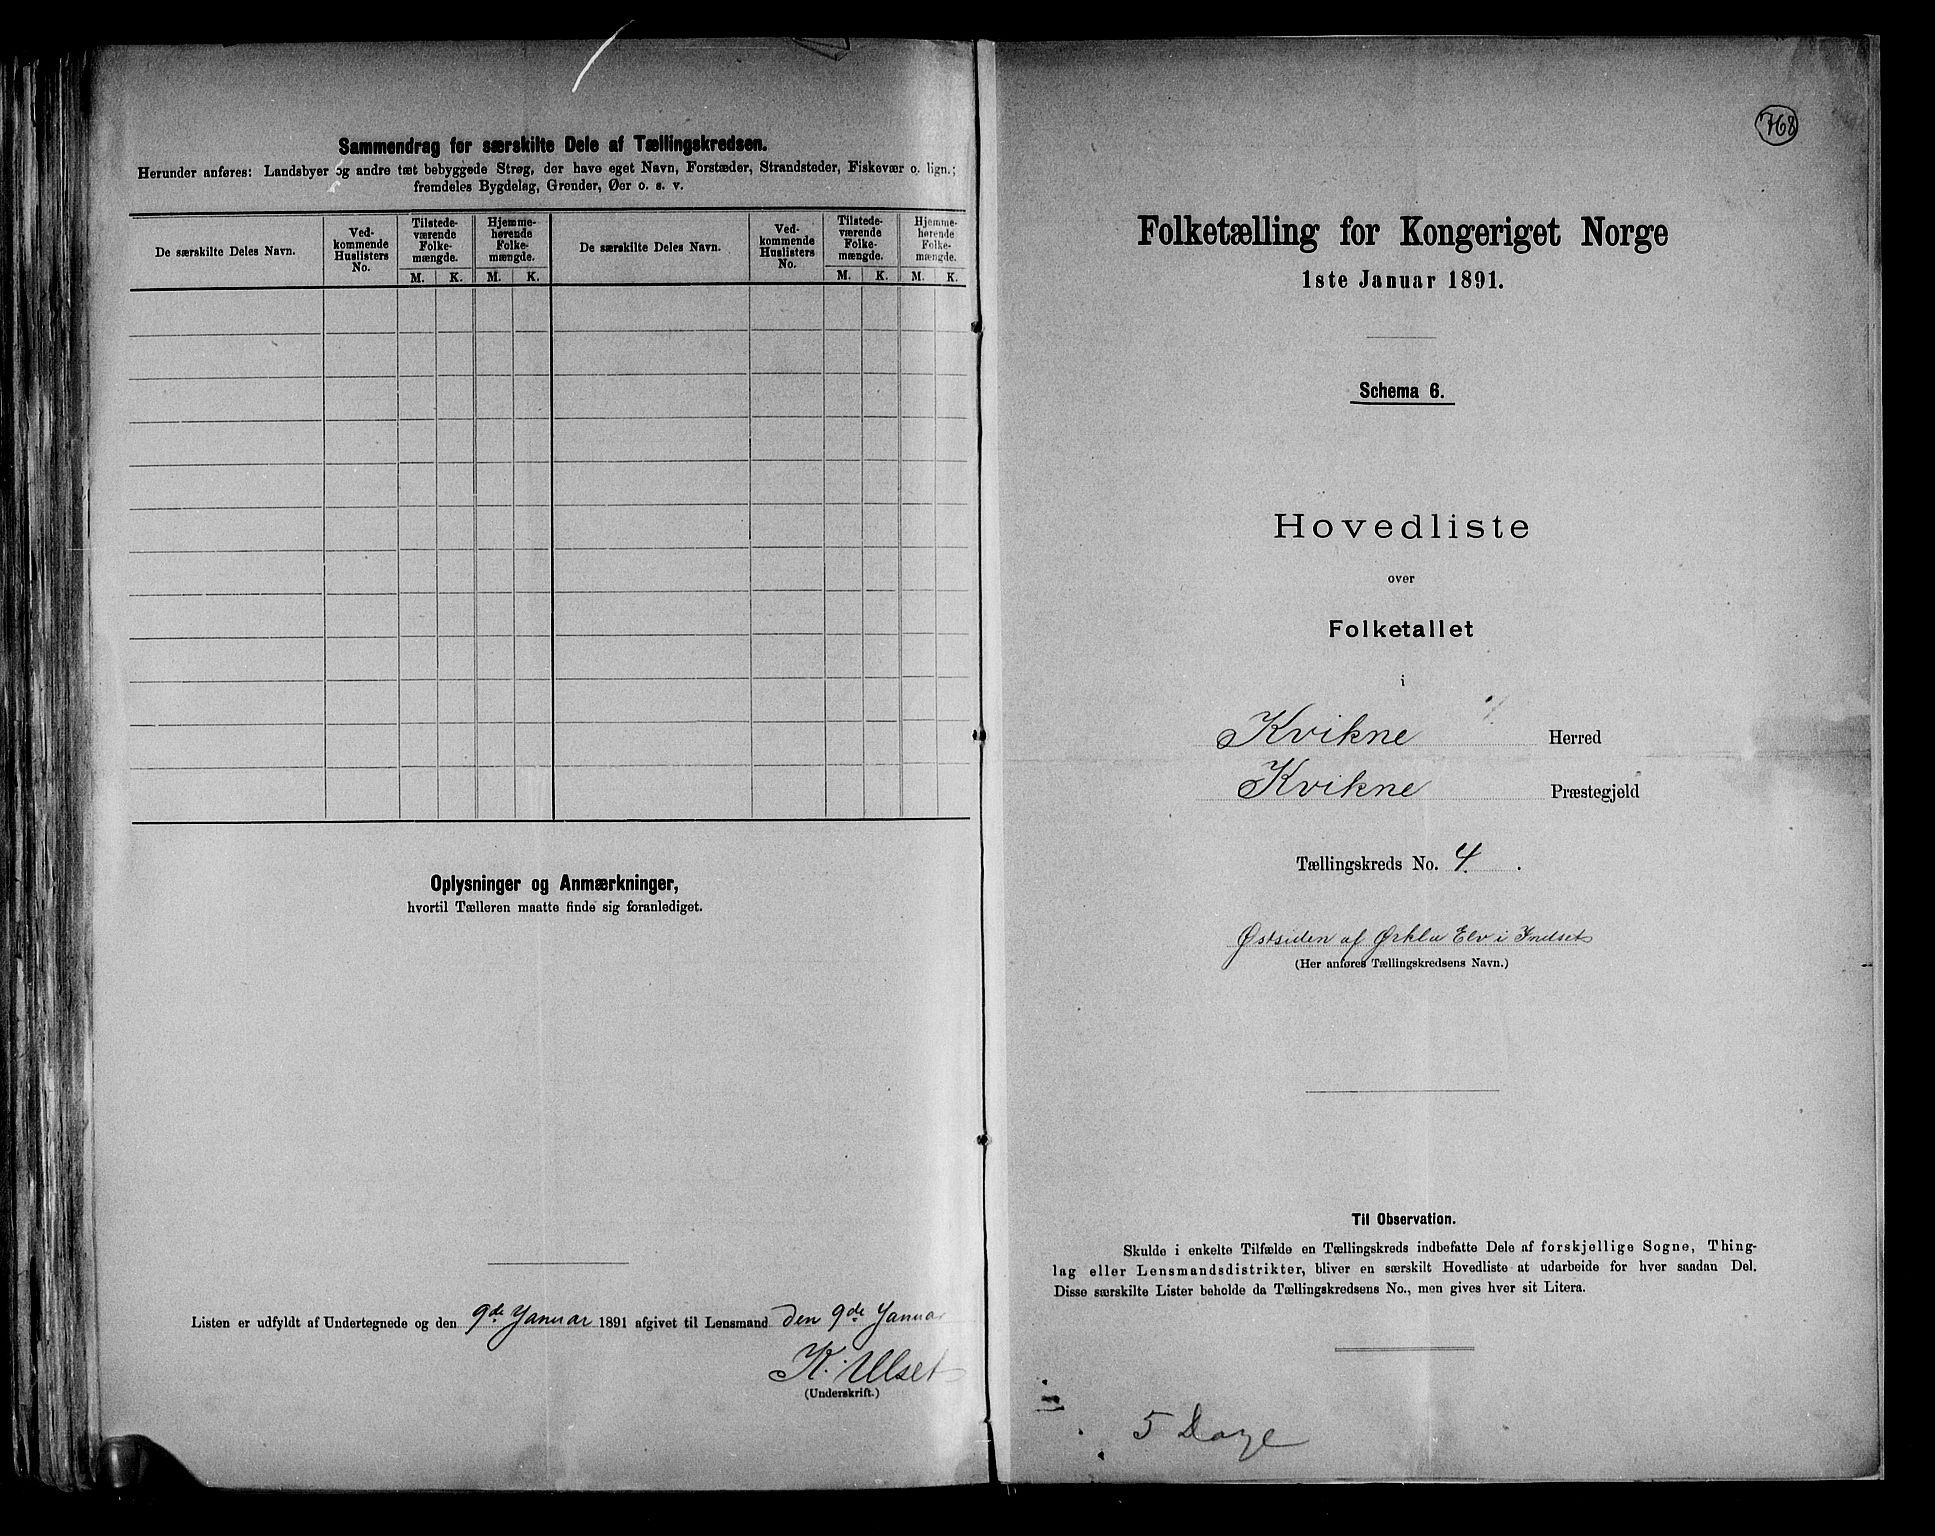 Sammendrag for særskilte Dele af Tællingskredsen.
Herunder anføres: Landsbyer og andre tæt bebyggede Strøg, der have eget Navn, Forstæder, Strandsteder, Fiskevær o. lign.;
fremdeles Bygdelag, Grender, Øer o. s. v.
De særskilte Deles Navn.
Ved-
kommende
Huslisters
No.
Tilstede-
værende
Folke-
mængde.
Hjemme-
hørende
Folke-
mængde.
De særskilte Deles Navn.
Ved-
kommende
Huslisters
No.
Tilstede-
værende
Folke-
mængde.
Hjemme-
hørende
Folke-
mængde.
M. K. M. K. M. K. M. K.
Oplysninger og Anmærkninger,
hvortil Tælleren maatte finde sig foranlediget.
Listen er udfyldt af Undertegnede og den 9de Januar 1891 afgivet til Lensmand den 9de Januar
K. Ulset
(Underskrift.)
768
Folketælling for Kongeriget Norge
1ste Januar 1891.
Schema 6.
Hovedliste
over
Folketallet
i
Kvikne Herred
Kvikne Præstegjeld
Tællingskreds No. 4.
Østsiden af Ørkla Elv i Indset
(Her anføres Tællingskredsens Navn.)
Til Observation.
Skulde i enkelte Tilfælde en Tællingskreds indbefatte Dele af forskjellige Sogne, Thing-
lag eller Lensmandsdistrikter, bliver en særskilt Hovedliste at udarbeide for hver saadan Del.
Disse særskilte Lister beholde da Tællingskredsens No., men gives hver sit Litera.
5 Dage